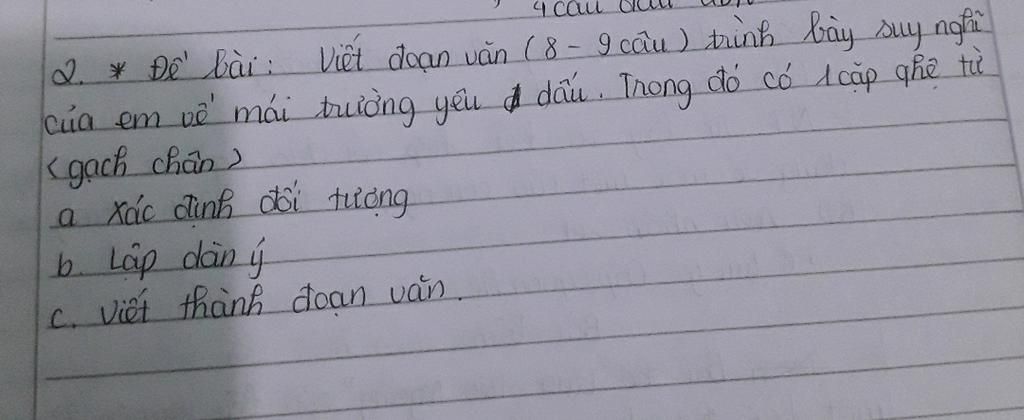 4 câu đầu
2. * Đề bài: Viết đoạn văn (8 - 9 câu) trình bày suy nghĩ
của em về mái trường yêu dấu. Trong đó có 1 cặp qhệ từ
(gạch chân)
a xác định đối tượng
b. Lập dàn ý
c. viết thành đoạn văn.